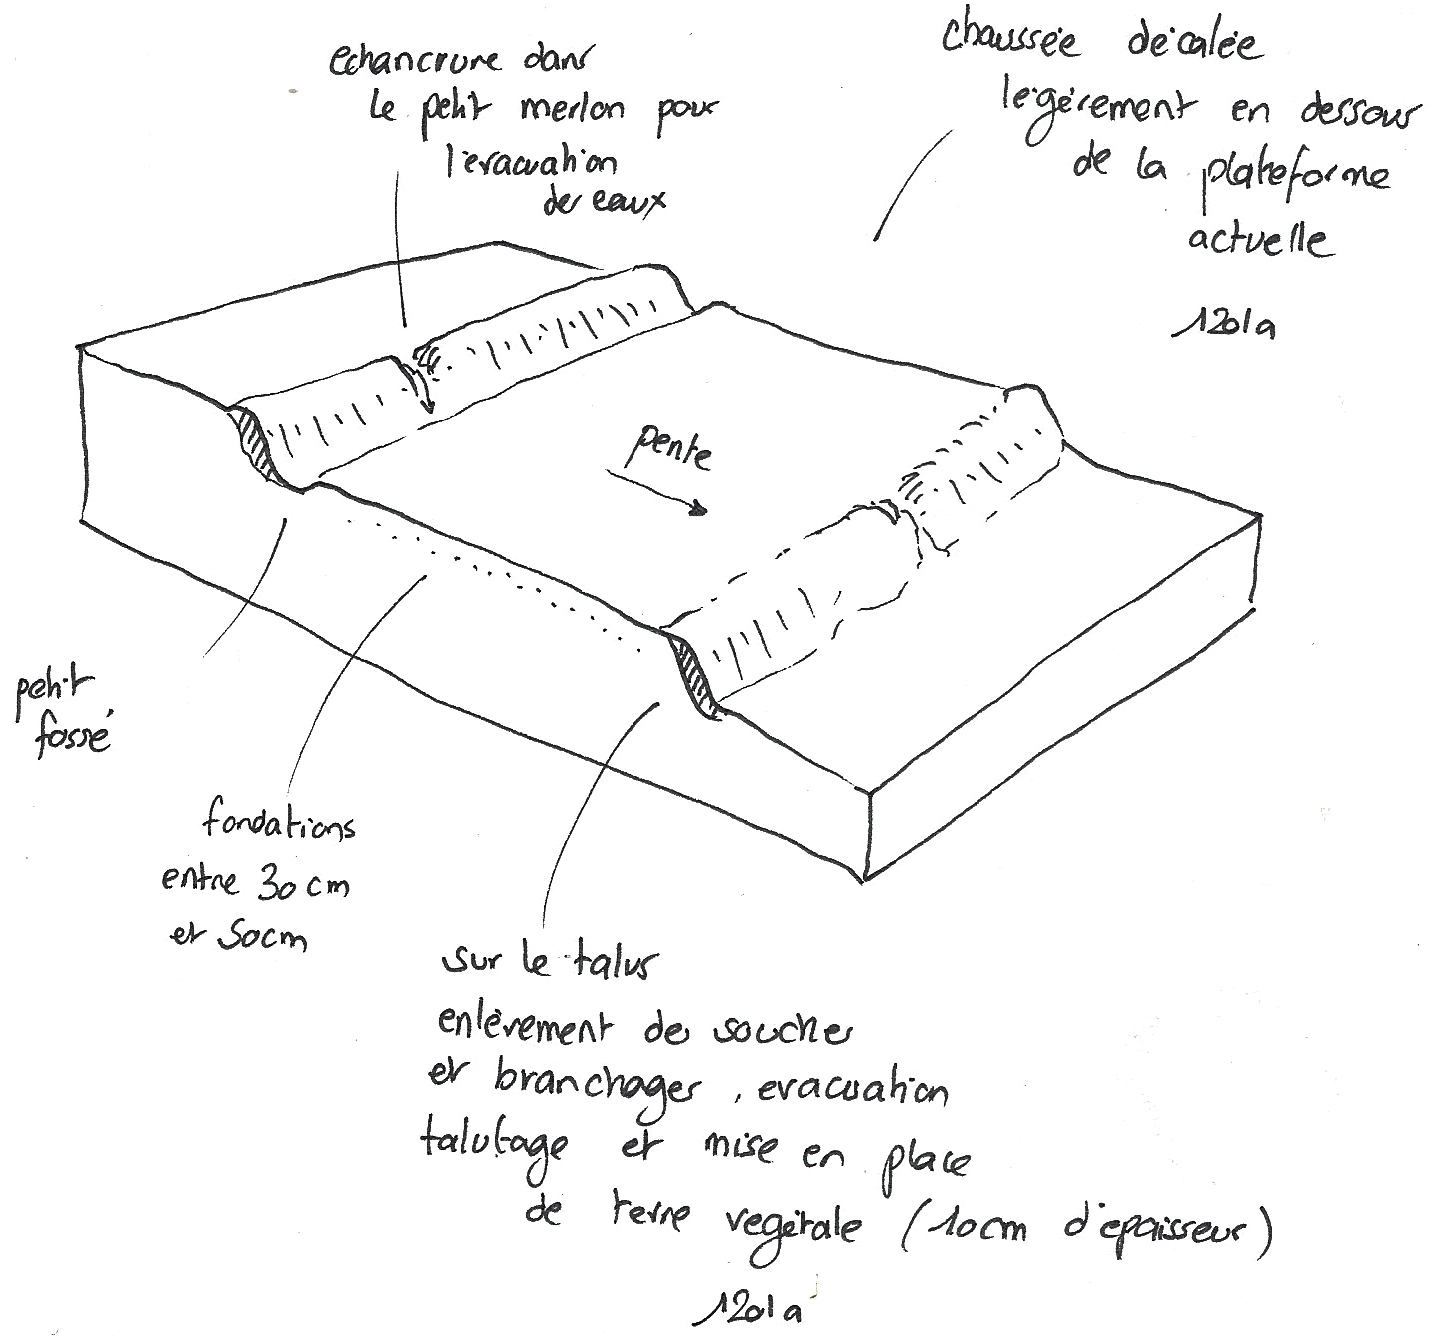 echancrure dans
le petit merlon pour
l'evacuation
des eaux
chaussée décalée
légérement en dessous
de la plateforme
actuelle
1201a
pente
petit
fossé
fondations
entre 30 cm
et 50cm
sur le talus
enlèvement de souches
et branchages, evacuation
talutage et mise en place
de terre vegétale (10cm d'epaisseur)
1201a